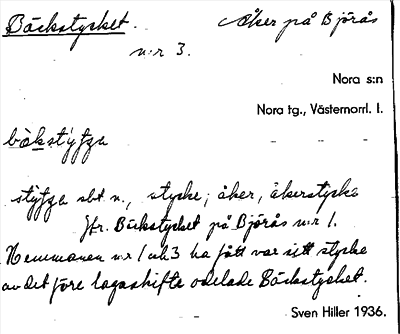 Bäckstycket. Åker på Björås
n:r 3.
Nora s:n
Nora tg., Västernorrl. l.
bäkstýʃʒa - - -
stýʃʒa sbt n., stycke; åker, åkerstycke
Jfr. Bäckstycket på Björås n:r 1.
Hemmanen n:r 1 och 3 ha fått var sitt stycke
av det före lagaskifte odelade Bäckstycket.
Sven Hiller 1936.